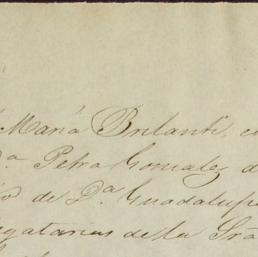 María Brilanti,
D.ª Petra Gonzalez d
de D.ª Guadalupe
legatarias de la Sra